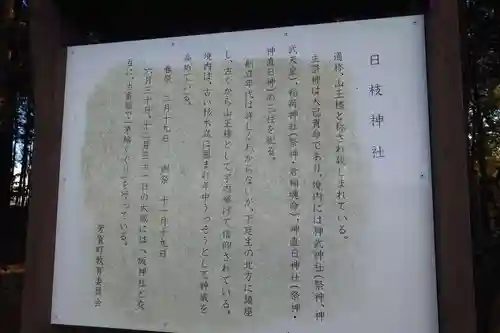 日枝神社
通称、山王様と称され親しまれている。
主祭神は大己貴命であり、境内には神武神社(祭神、神
武天皇)、稲荷神社(祭神・倉稲魂命)、神直日神社(祭神・
神直日神)の三社を祀る。
創立年代は詳しくわからないが、下延生の北方に鎮座
し、古くから山王様として字内挙げて信仰されている。
境内は、古い杉木立に囲まれ年中うっそうとして神威を
高めている。
春祭 二月十九日 例祭 十一月十九日
六月三十日、十二月三十一日の大祓には、城神社と交
互に、古家部で茅輪くぐりを行っている。
芳賀町教育委員会